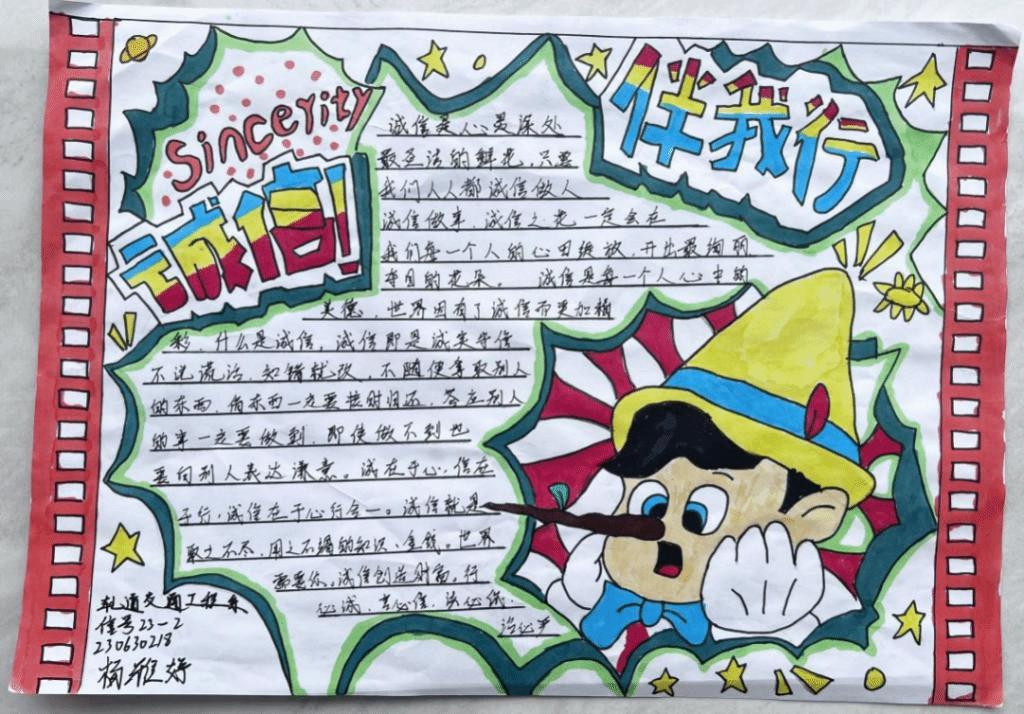 sincerity
诚信!
伴我行
诚信是心灵深处
最圣洁的鲜花,只要
我们人人都诚信做人
诚信做事,诚信之花一定会在
我们每一个人的心田绽放,开出最绚丽
夺目的花朵。 诚信是每一个人心中的
美德,世界因有了诚信而更加精
彩,什么是诚信,诚信即是诚实守信
不说谎话,知错就改,不随便拿取别人
的东西,借东西一定要按时归还,答应别人
的事一定要做到,即使做不到也
要向别人表达歉意。诚在于心,信在
于行,诚信在于心行合一。诚信就是
取之不尽,用之不竭的知识、金钱。世界
需要你。诚信创造财富。行
必诚,言必信,
治必严
轨道交通工程系
信号23-2
230630218
杨雅婷